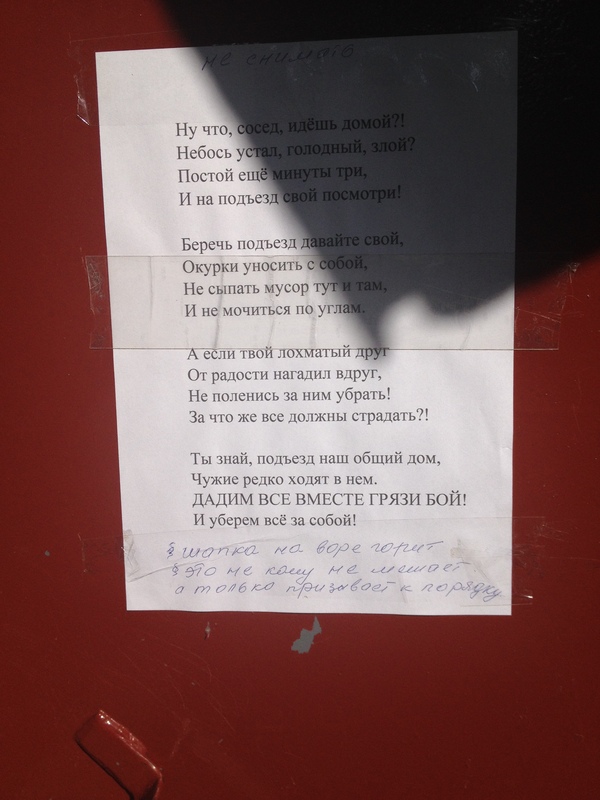 не снимать
Ну что, сосед, идёшь домой?!
Небось устал, голодный, злой?
Постой ещё минуты три,
И на подъезд свой посмотри!
Беречь подъезд давайте свой,
Окурки уносить с собой,
Не сыпать мусор тут и там,
И не мочиться по углам.
А если твой лохматый друг
От радости нагадил вдруг,
Не поленись за ним убрать!
За что же все должны страдать?!
Ты знай, подъезд наш общий дом,
Чужие редко ходят в нем.
ДАДИМ ВСЕ ВМЕСТЕ ГРЯЗИ БОЙ!
И уберем всё за собой!
§ шапка на воре горит
§ это не кому не мешает
а только призывает к порядку